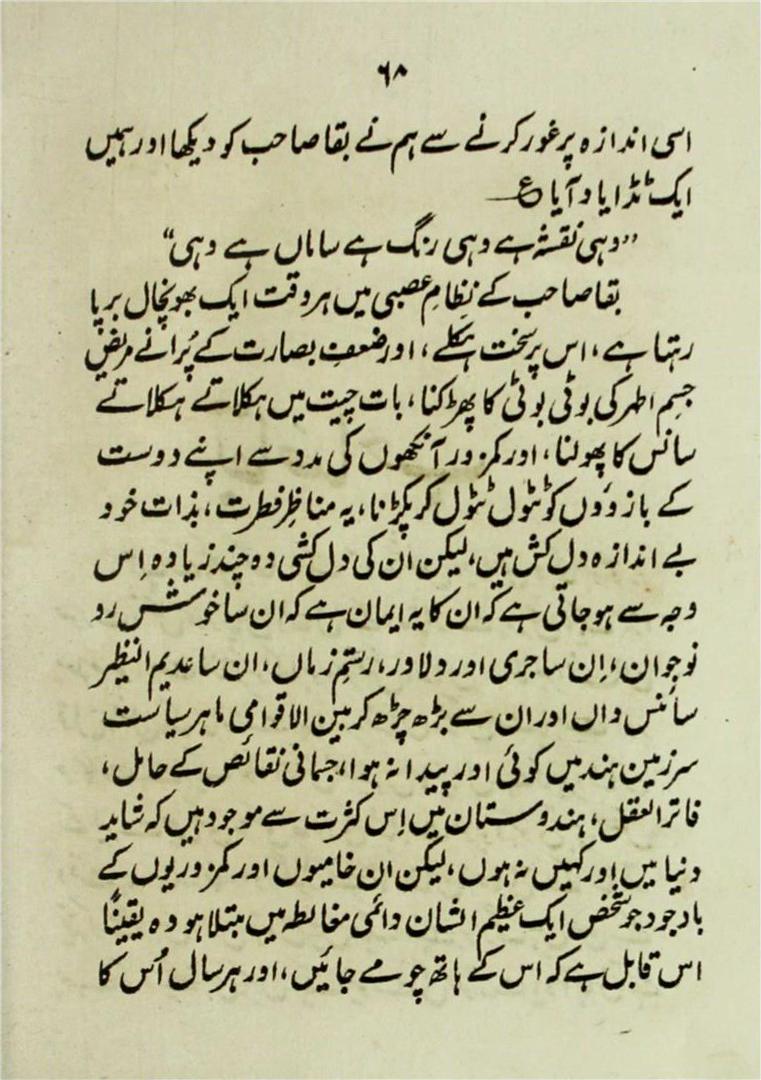 ۶۸
اسی اندازہ پر غور کرنے سے ہم نے بقا صاحب کو دیکھا اور ہمیں
ایک ٹڈا یاد آیا ع
”وہی نقشہ ہے وہی رنگ ہے ساماں ہے وہی“
بقا صاحب کے نظامِ عصبی میں ہر وقت ایک بھونچال برپا
رہتا ہے، اس پر سخت ہکلے، اور ضعفِ بصارت کے پُرانے مریض
جسمِ اطہر کی بوٹی بوٹی کا پھڑکنا، بات چیت میں ہکلاتے ہکلاتے
سانس کا پھولنا، اور کمزور آنکھوں کی مدد سے اپنے دوست
کے بازوؤں کو ٹٹول ٹٹول کر پکڑنا، یہ مناظرِ فطرت، بذات خود
بے اندازہ دل کش ہیں، لیکن ان کی دل کشی دہ چند زیادہ اِس
وجہ سے ہو جاتی ہے کہ ان کا یہ ایمان ہے کہ ان سا خوش رو
نوجوان، اِن سا جری اور دلاور، رستمِ زماں، ان سا عدیم النظیر
سائنس داں اور ان سے بڑھ چڑھ کر بین الاقوامی ماہر سیاست
سرزمین ہند میں کوئی اور پیدا نہ ہوا، جسمانی نقائص کے حامل،
فاتر العقل، ہندوستان میں اِس کثرت سے موجود ہیں کہ شاید
دنیا میں اور کہیں نہ ہوں، لیکن ان خامیوں اور کمزوریوں کے
باوجود جو شخص ایک عظیم الشان دائمی مغالطہ میں مبتلا ہو وہ یقیناً
اس قابل ہے کہ اس کے ہاتھ چومے جائیں، اور ہر سال اُس کا